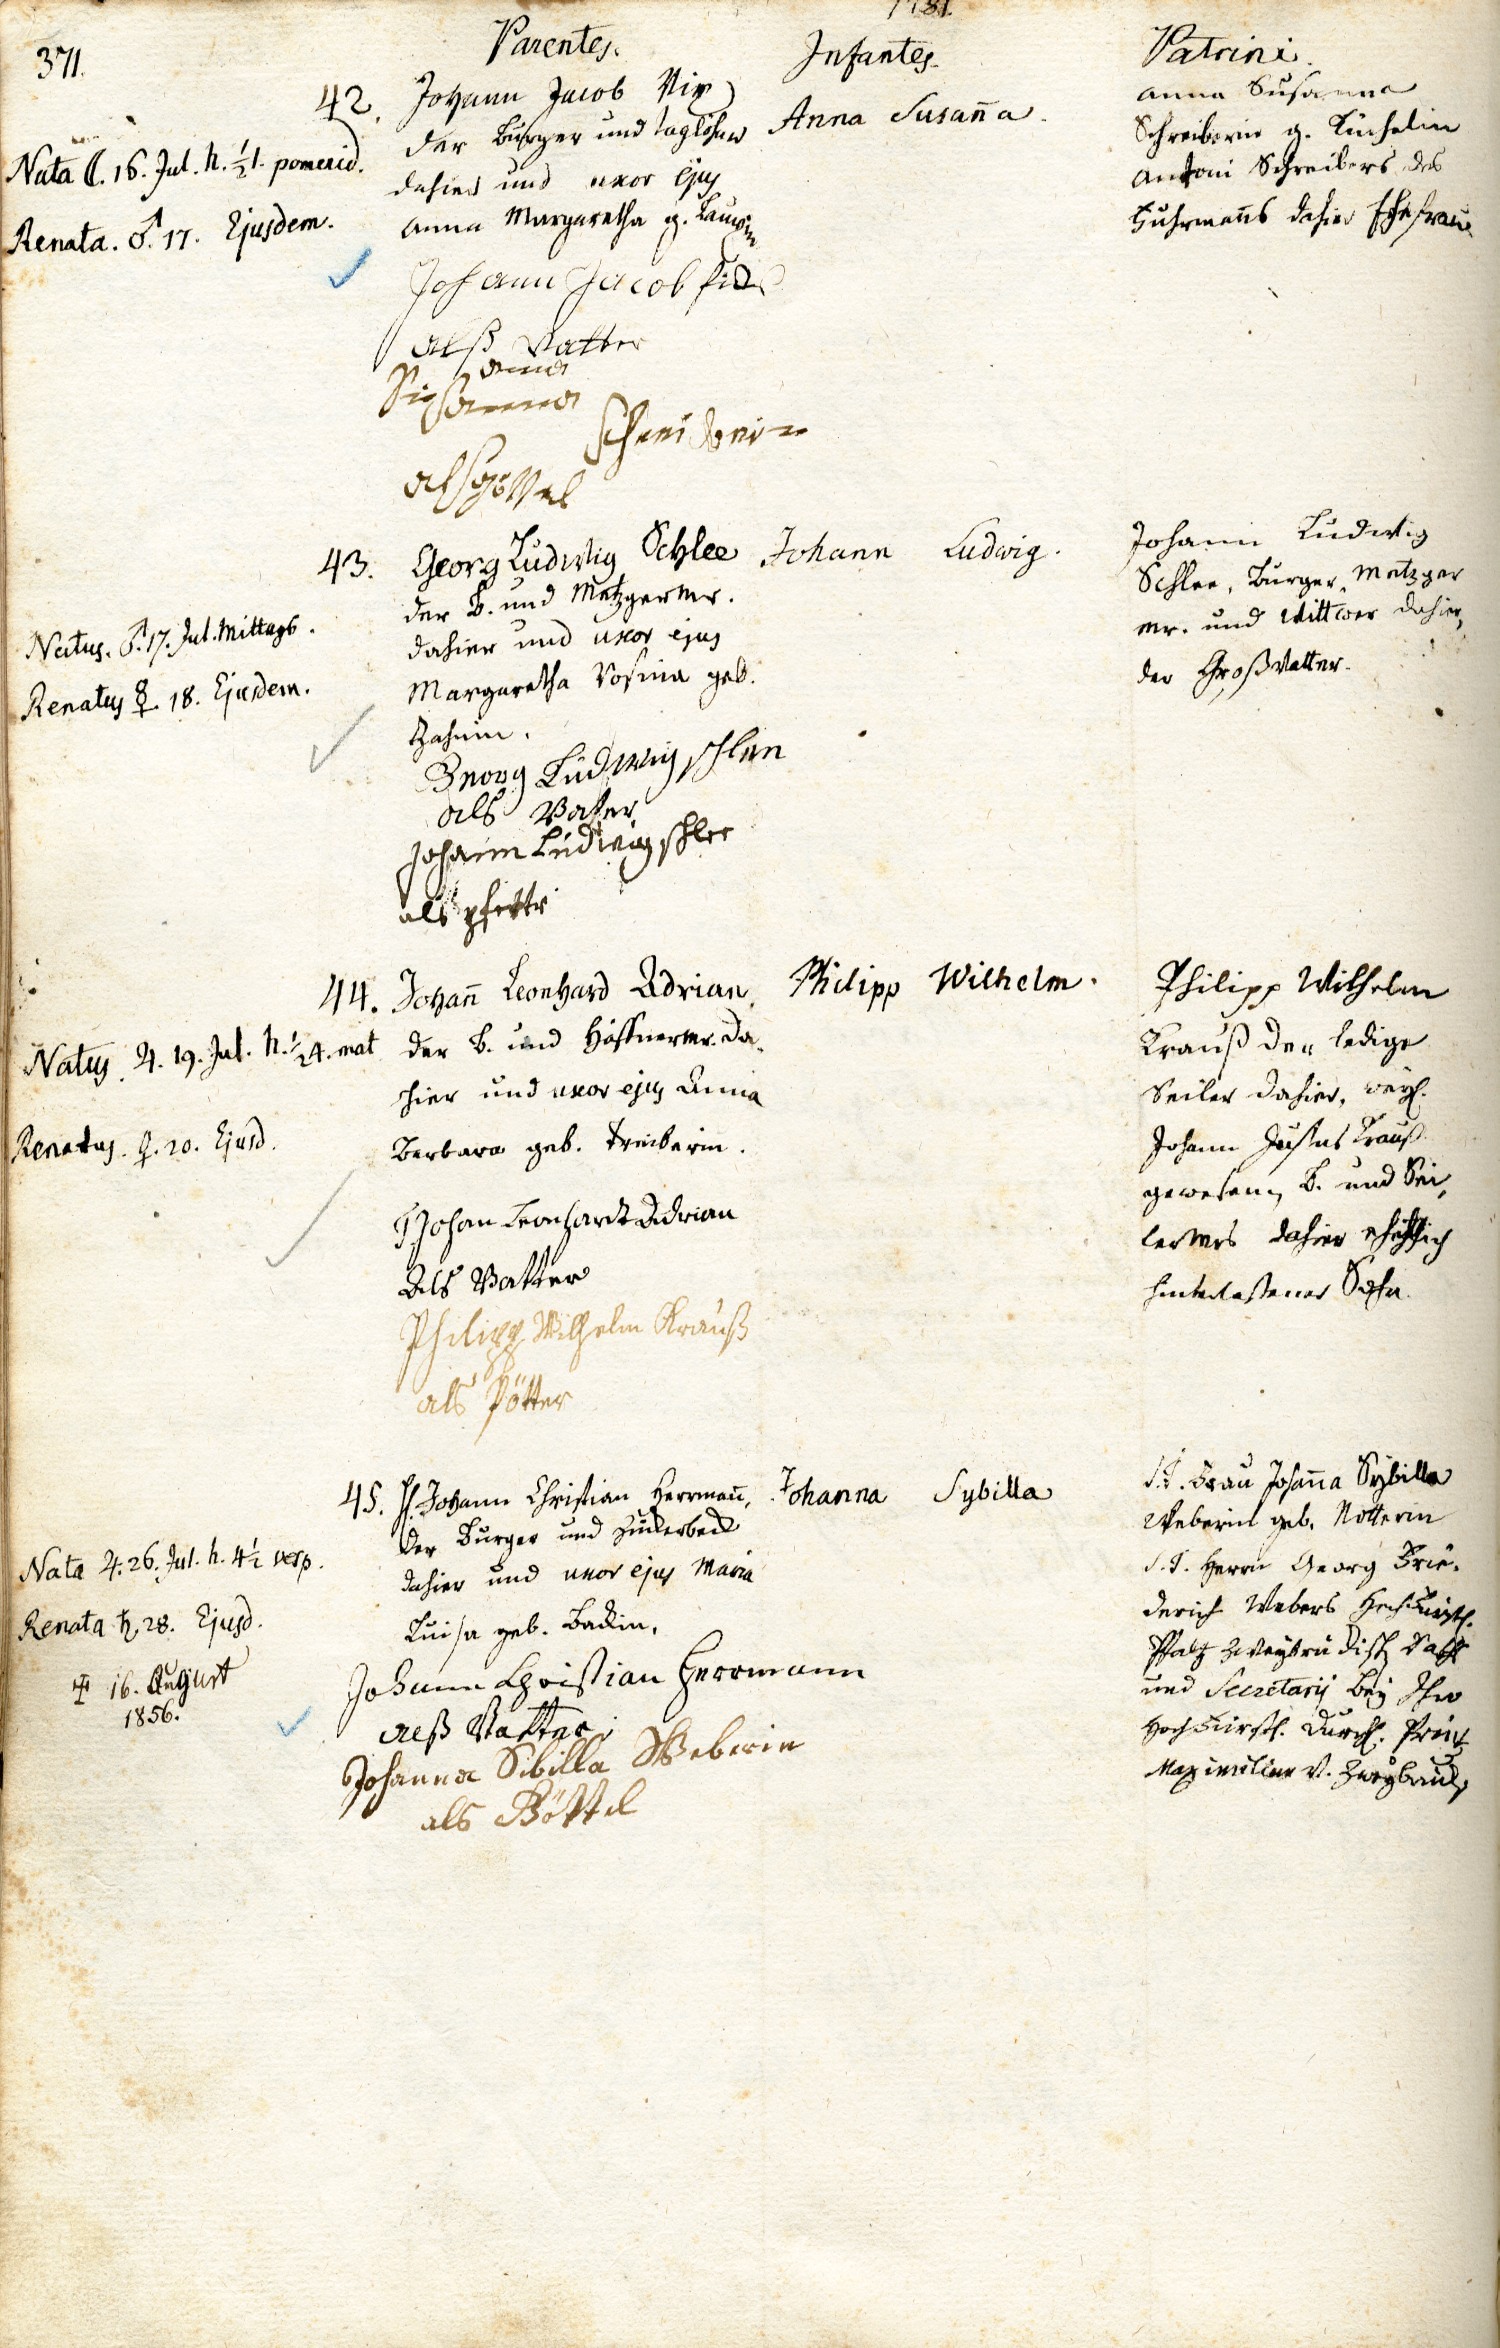 1781.
371.
Parentes.
Infantes.
Patrini.
42.
Nata ☾. 16. Jul. h. ½1. pomerid.
Renata. ♂. 17. Ejusdem.
Johann Jacob
der Burger und Taglöhner
dahier und uxor Ejus
Anna Margaretha g.
Johann Jacob
alß Vatter
anna
Susanna
Schreiberin
als Göttel
Anna Susaña.
Anna Susanna
Schreiberin g.
Antoni Schreibers des
Fuhrmañs dahier Ehefrau
43.
Natus. ♂. 17. Jul. Mittags.
Renatus ☿. 18. Ejusdem.
Georg Ludwig Schlee
der B. und Metzgermr.
dahier und uxor ejus
Margaretha Rosina geb.
Zahnin.
Georg Ludwig Schlee
als Vater
Johann Ludwig Schlee
als pfetter
Johann Ludwig.
Johann Ludwig
Schlee, Burger, Metzger
mr. und Wittwer dahier,
der Großvatter.
44.
Natus. ♃. 19. Jul. h. ½4. mat
Renatus. ♀. 20. Ejusd.
Johañ Leonhard Adrian,
der B. und Haffnermr. da-
hier und uxor ejus Anna
Barbara geb. Treiberin.
Johan Leonhardt Adrian
Als Vatter
Philipp Wilhelm Krauß
als Pötter
Philipp Wilhelm.
Philipp Wilhelm
Krauß der ledige
Seiler dahier, weyl.
Johann Justus Krauß
gewesenen B. und Sei-
lermrs dahier ehelich
hinterlaßener Sohn.
45.
Nata ♃. 26. Jul. h. 4½ vesp.
Renata ♄. 28. Ejusd.
16. August
1856.
H. Johann Christian Herrmañ,
der Burger und Zuckerbeck
dahier und uxor ejus Maria
Luisa geb. Backin.
Johann Christian Herrmann
alß Vatter
Johanna Sibilla Weberin
als Göttel
Johanna Sybilla
S. T. Frau Johaña Sybilla
Weberin geb. Notterin
S. T. Herrn Georg Frie-
derich Webers Hochfürstl.
Pfalz Zweybrückisch
und Secretarij bey Ihro
Hochfürstl. Durchl. Prinz
Maximilian v. Zweybrück,